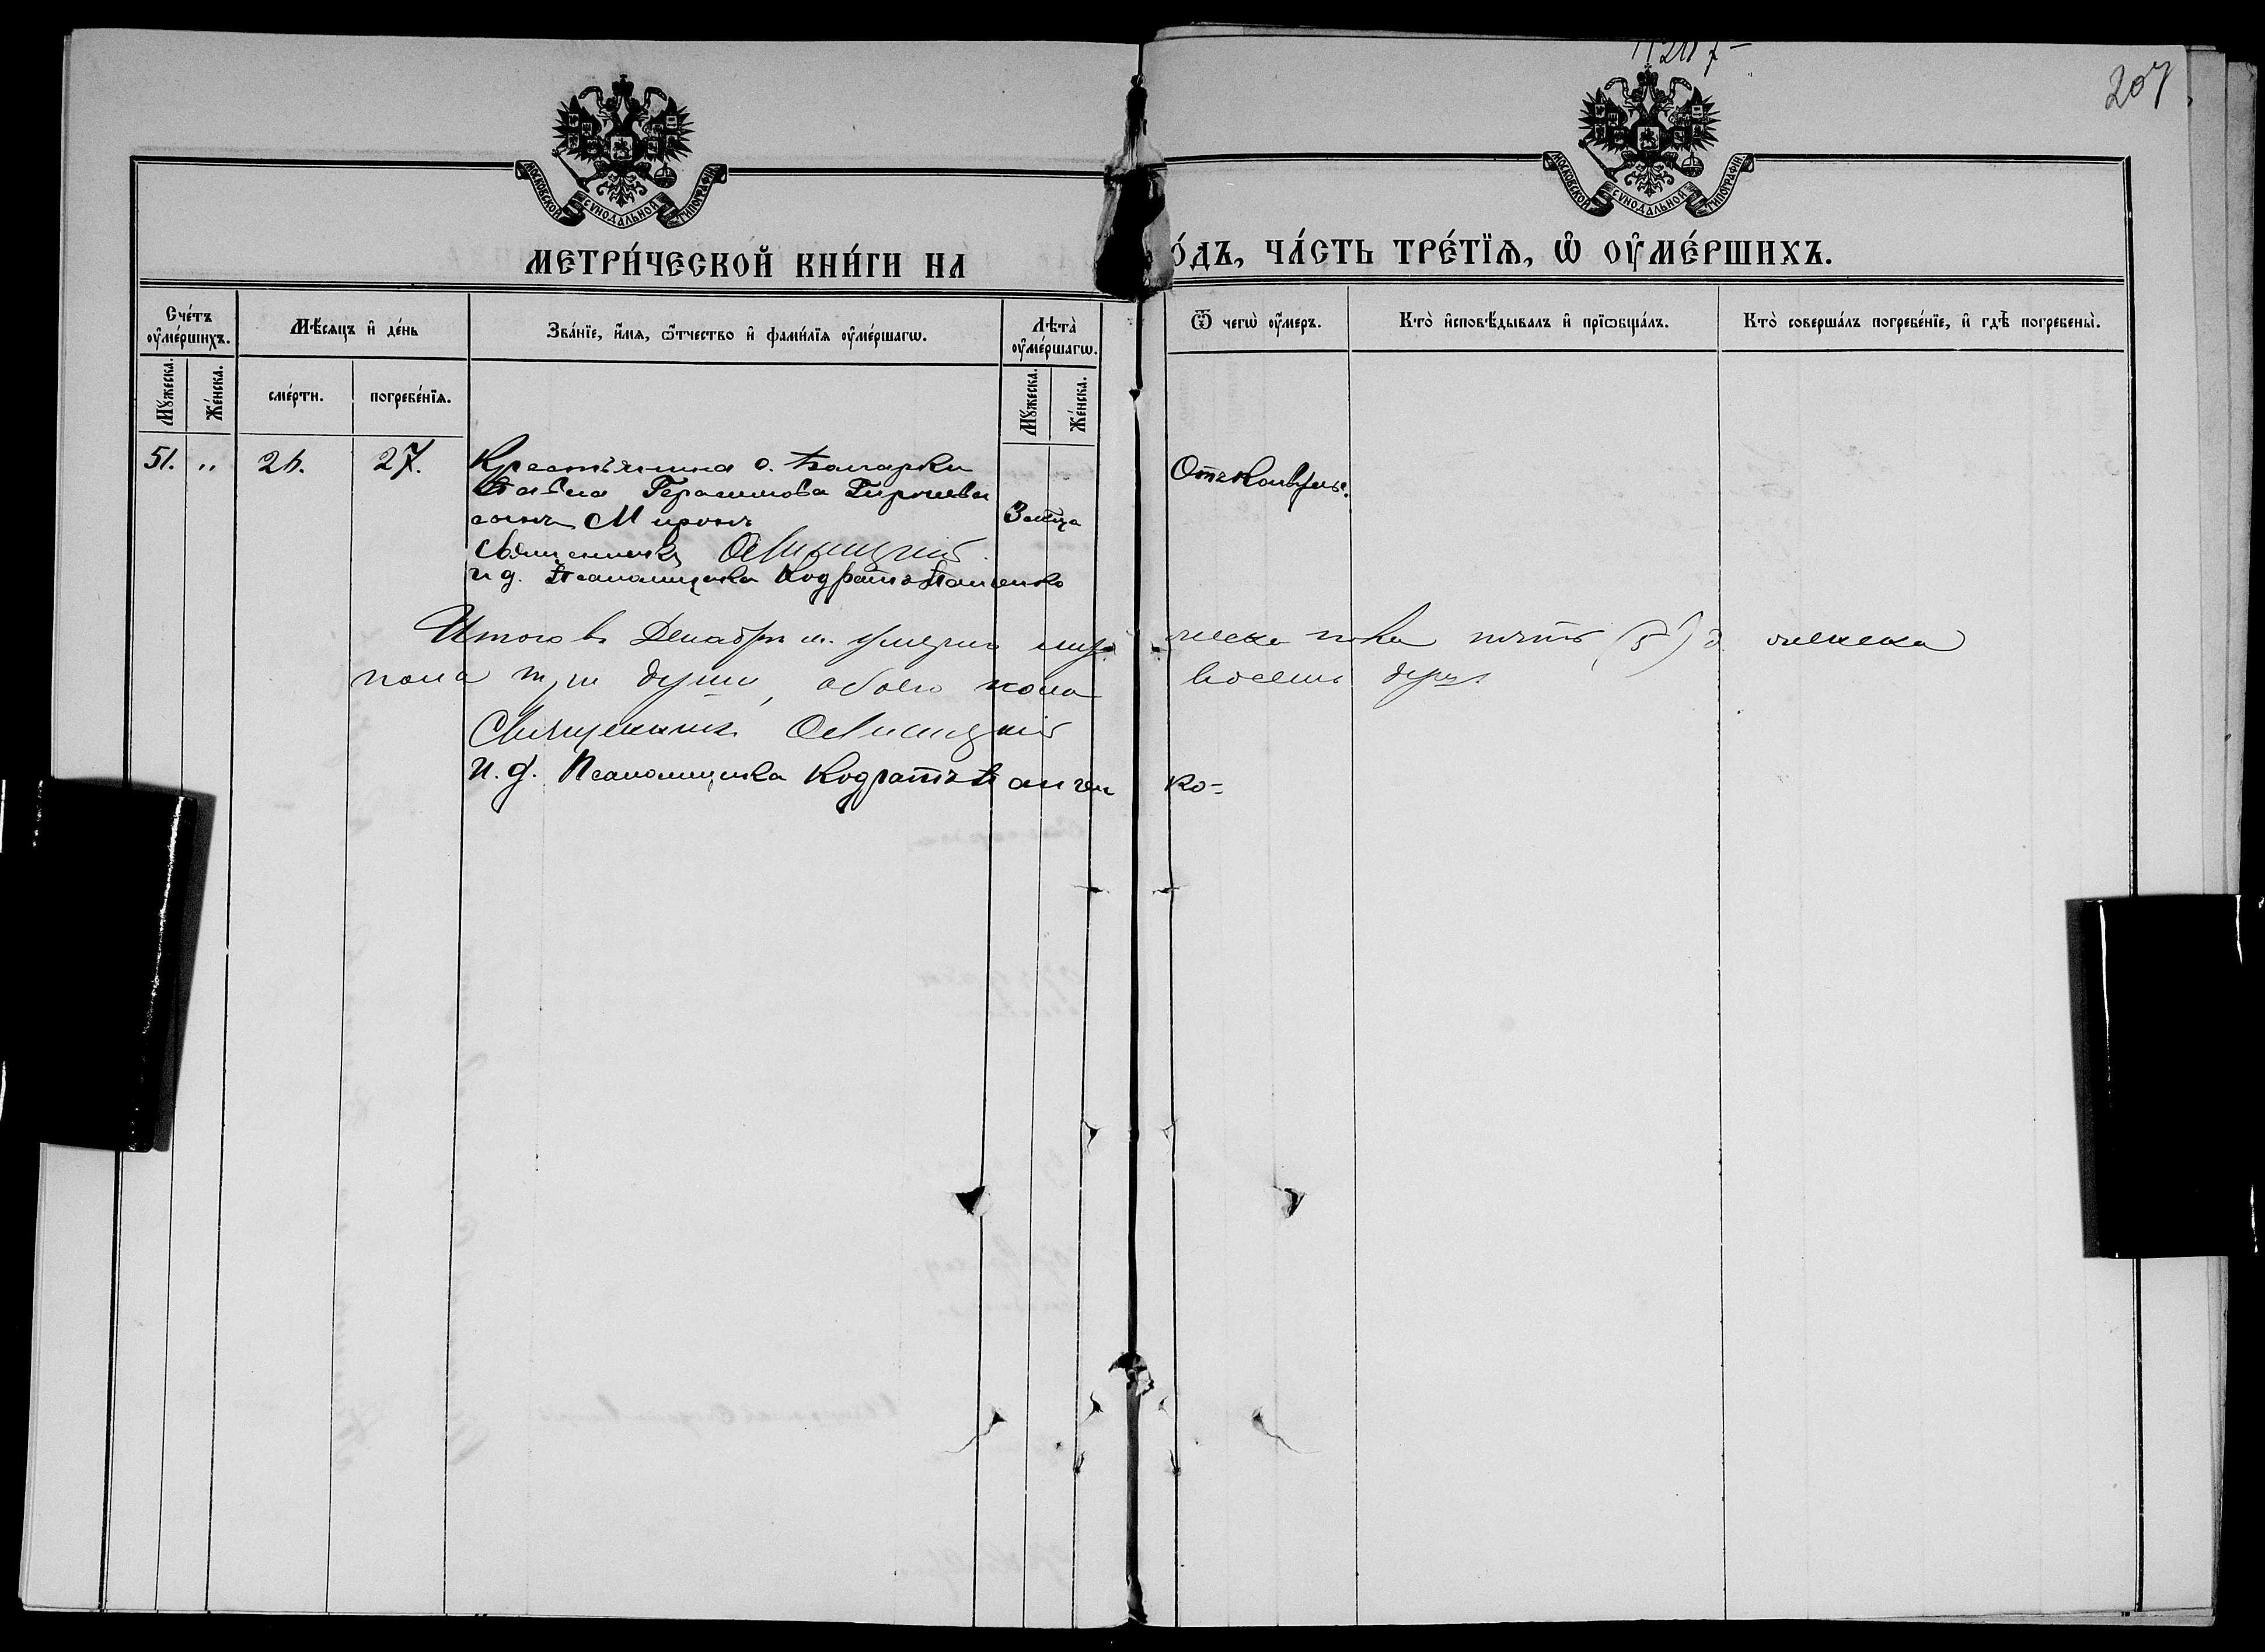 207
МОСКОВСКОЙ СѴНОДАЛЬНОЙ ТИПОГРАФІИ
МОСКОВСКОЙ СѴНОДАЛЬНОЙ ТИПОГРАФІИ
МЕТРИ́ЧЕСКОЙ КНИ́ГИ НА
О́ДЪ, ЧА́СТЬ ТРЕ́ТЇѦ, Ѡ҆ ОУ҆МЕ́РШИХЪ.
Сче́тъ оу҆ме́ршихъ.
Мꙋ́жеска.
Же́нска.
Мѣ́сяцъ и҆ де́нь
сме́рти.
погребе́нїѧ.
Зва́нїе, и҆́мѧ, ѻ҆́тчество и҆ фами́лїѧ оу҆ме́ршагѡ.
Лѣ́та оу҆ме́ршагѡ.
Мꙋ́жеска.
Же́нска.
Ѿ чегѡ̀ оу҆́меръ.
Кто̀ и҆сповѣ́дывалъ и҆ прїѡбща́лъ.
Кто̀ соверша́лъ погребе́нїе, и҆ гдѣ̀ погребены̀.
51. " 26. 27. Крестьянина с.
Павла Герасимова
сынъ Миронъ 3 мѣсяца
Священникъ
и д. Псаломщика Кодратъ Панченко
Итого въ Декабрѣ м. умерло мужеска пола пять (5) д. женска
пола три души, обоего пола восемь душъ
Священникъ
И. д. Псаломщика Кодратъ Панченко=